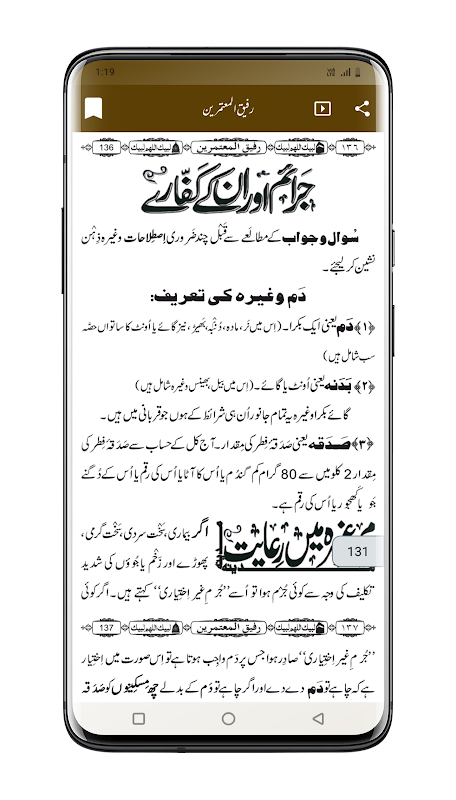 1:19
رفیق المعتمرین
136 لبیك اللهم لبیك رفیق المعتمرین لبیك اللهم لبیك ١٣٦
جرائم اور ان کے کفّارے
سُوال و جواب کے مطالَعے سے قَبْل چند ضَروری اِصطِلاحات وغیرہ ذِہن
نشین کر لیجئے۔
دَم وغیرہ کی تعریف:
﴿۱﴾ دَم یعنی ایک بکرا۔ (اِس میں نَر، مادہ، دُنبہ، بَھیڑ، نیز گائے یا اُونٹ کا ساتواں حصّہ
سب شامل ہیں)
﴿۲﴾ بَدَنہ یعنی اُونٹ یا گائے۔ (اِس میں بیل، بھینس وغیرہ شامل ہیں)
گائے بکرا وغیرہ یہ تمام جانور اُن ہی شرائط کے ہوں جو قربانی میں ہیں۔
﴿۳﴾ صَدَقہ یعنی صَدَقۂ فِطر کی مقدار۔ آج کل کے حساب سے صَدَقۂ فِطر کی
مِقدار 2 کلو میں سے 80 گرام کم گندُم یا اُس کا آٹا یا اُس کی رقم یا اُس کے دُگنے
جَو یا کَھجور یا اُس کی رقم ہے۔
وغیرہ میں رِعایت
اگر بیماری، سَخْت سردی، سَخْت گرمی،
131
پھوڑے اور زَخْم یا جُوؤں کی شدید
تکلیف کی وجہ سے کوئی جُرْم ہوا تو اُسے ’’جُرمِ غیر اِختیاری‘‘ کہتے ہیں۔ اگر کوئی
137 لبیك اللهم لبیك رفیق المعتمرین لبیك اللهم لبیك ١٣٧
’’جُرمِ غیر اِختیاری‘‘ صادِر ہوا جس پر دَم واجِب ہوتا ہے تو اِس صورت میں اِختیار
ہے کہ چاہے تو دَم دے دے اور اگر چاہے تو دَم کے بدلے چھ مِسکینوں کو صَدَقہ